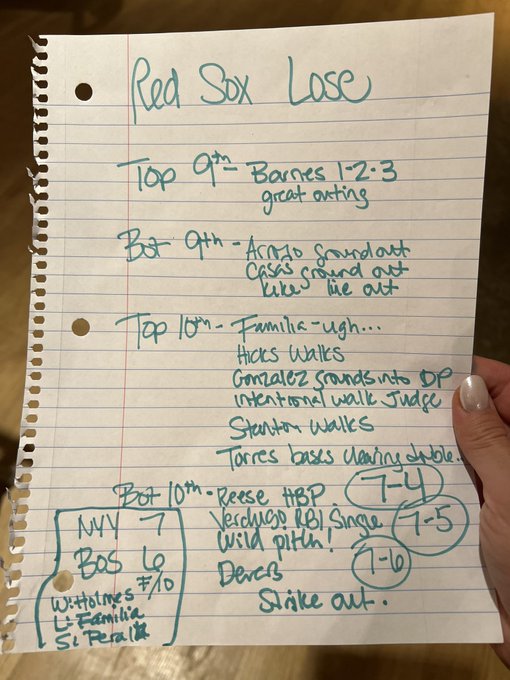 Red Sox Lose
Top 9th - Barnes 1-2-3
great outing
Bot 9th - Arroyo ground out
Casas ground out
Kike line out
Top 10th - Familia - ugh...
Hicks Walks
Gonzalez grounds into DP
intentional walk Judge
Stanton Walks
Torres bases clearing double.
7-4
Bot 10th - Reese HBP
Verdugo RBI Single
7-5
Wild pitch!
7-6
Devers
Strike out.
NYY 7
BOS 6
F/10
W: Holmes
L: Familia
S: Peralta